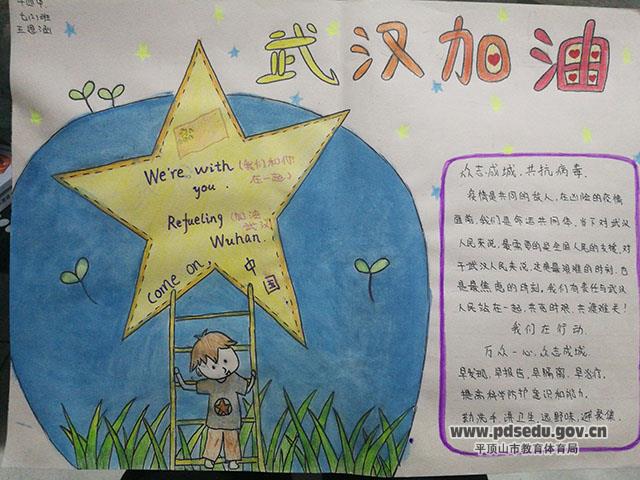 七(7)班
武汉加油
We're with (我们和你
you. 在一起)
Refueling (加油
Wuhan. 武汉)
come on, 中国
众志成城,共抗病毒.
疫情是共同的敌人,在凶险的疫情
面前,我们是命运共同体,当下对武汉
人民来说,最需要的是全国人民的支援,对
于武汉人民来说,这是最艰难的时刻,也
是最焦虑的时刻,我们有责任与武汉
人民站在一起,共克时艰,共渡难关!
我们在行动.
万众一心,众志成城.
早发现,早报告,早隔离,早治疗.
提高科学防护意识和能力.
勤洗手,讲卫生,远野味,避聚集.
www.pdsedu.gov.cn
平顶山市教育体育局